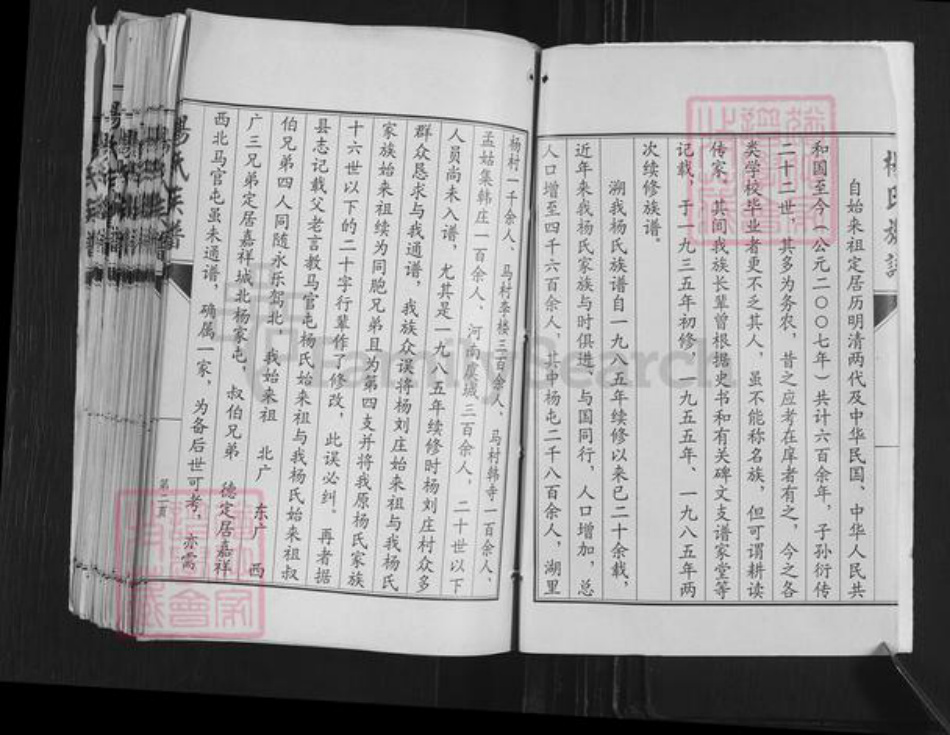 杨氏族谱
自始来祖定居历明清两代及中华民国、中华人民共
和国至今(公元二〇〇七年)共计六百余年,子孙衍传
二十二世,其多为务农,昔之应考在庠者有之,今之各
类学校毕业者更不乏其人,虽不能称名族,但可谓耕读
传家,其间我族长辈曾根据史书和有关碑文支谱家堂等
记载,于一九三五年初修,一九五五年、一九八五年两
次续修族谱。
溯我杨氏族谱自一九八五年续修以来已二十余载,
近年来我杨氏家族与时俱进,与国同行,人口增加,总
人口增至四千六百余人、其中杨屯二千八百余人,湖里
杨村一千余人、马村李楼三百余人、马村韩寺一百余人、
孟姑集韩庄一百余人、河南虞城三百余人,二十世以下
人员尚未入谱,尤其是一九八五年续修时杨刘庄村众多
群众恳求与我通谱,我族众误将杨刘庄始来祖与我杨氏
家族始来祖续为同胞兄弟且为第四支并将我原杨氏家族
十六世以下的二十字行辈作了修改,此误必纠。再者据
县志记载父老言教马官屯杨氏始来祖与我杨氏始来祖叔
伯兄弟四人同随永乐驾北 我始来祖 北广 东广 西
广三兄弟定居嘉祥城北杨家屯,叔伯兄弟 德定居嘉祥
西北马官屯虽未通谱,确属一家,为备后世可考,亦需
杨氏族谱
第二页
FamilySearch